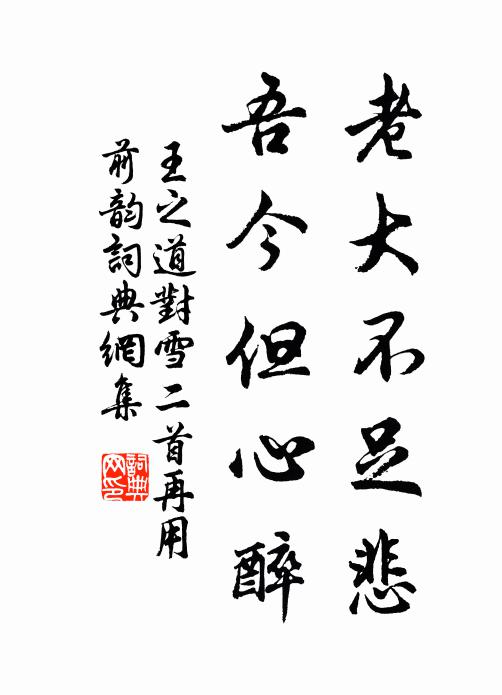 老大不足悲
吾今但心醉
王之道對雪二首再用
前韵詞典網集
詞典
网印